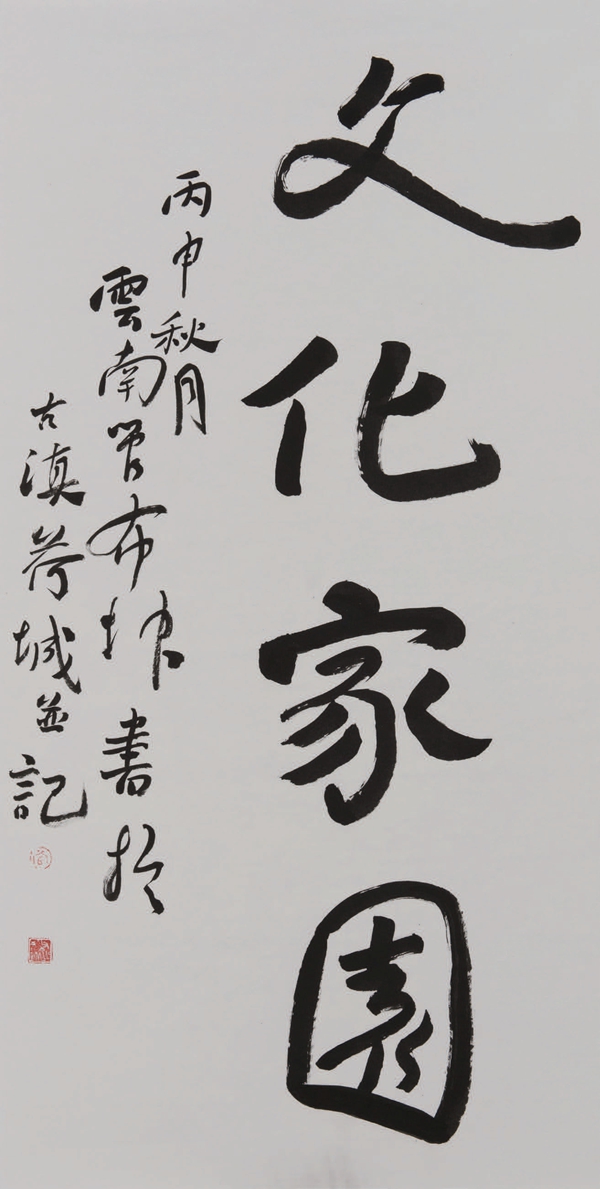 文化家園
丙申秋月
雲南布坤書於
古滇荷城並記